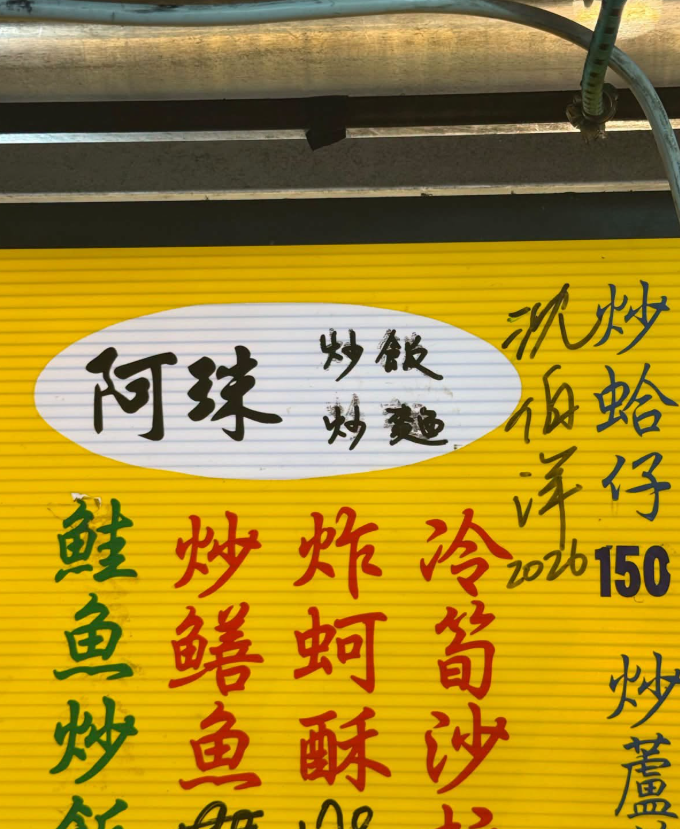 阿珠
炒飯
炒麵
炒蛤仔
150
炒蘆
沈伯洋
2026
冷筍沙
炸蚵酥
炒鱔魚
鮭魚炒飯